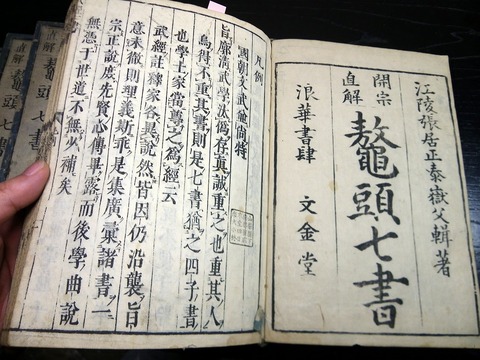 江陵張居正泰嶽父輯著
開宗
直解
鼇頭七書
浪華書肆 文金堂
凡例
國朝文武並尚特
旨廓清武學汰偽存真誠重之也重其人
烏得不重其書則是七書猶之四子書
也學士家當尊之為經云
武經註釋家各異說然皆因仍沿襲旨
意未徹則理義斯乖是集廣彙諸書一
宗正說庶先賢心傳畢露而後學曲說
無憑于世道不無少補矣
直解
鼇頭七書
直解
鼇頭七